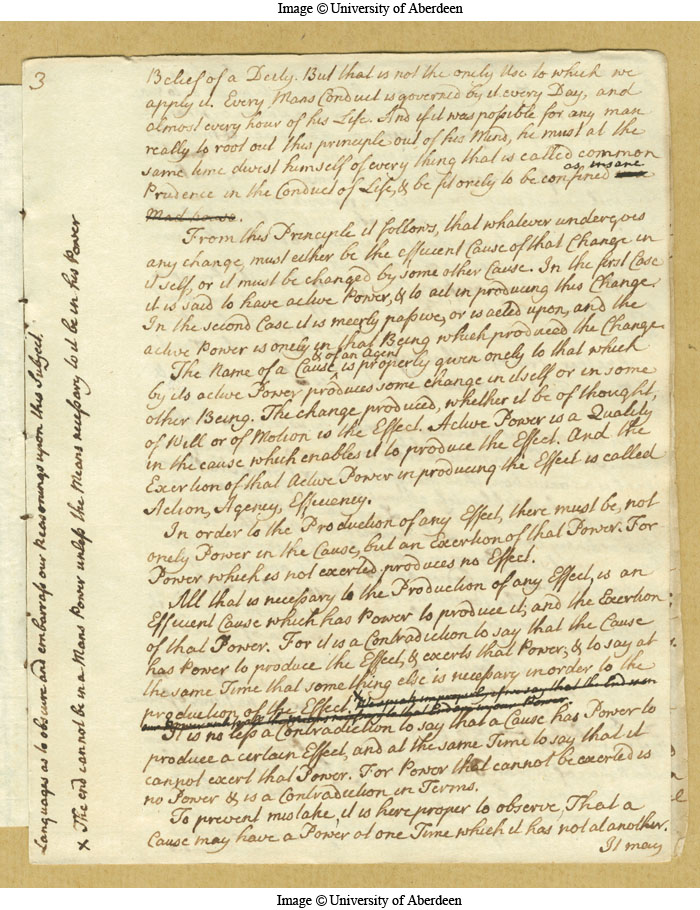 Image © University of Aberdeen
3
Belief of a Deity. But that is not the onely Use to which we
apply it. Every Mans Conduct is governed by it every Day, and
almost every hour of his Life. And if it was possible for any man
really to root out this principle out of his Mind, he must at the
same time divest himself of every thing that is called common
as insane
Prudence in the Conduct of Life, & be fit onely to be confined
Mad house.
From this Principle it follows, that whatever undergoes
any change, must either be the efficient Cause of that Change in
itself, or it must be changed by some other Cause. In the first Case
it is said to have active Power, & to act in producing this Change.
In the second Case it is meerly passive, or is acted upon, and the
active Power is onely in that Being which produced the Change.
& of an Agent
The Name of a Cause is properly given onely to that which
by its active Power produces some change in itself or in some
other Being. The change produced, whether it be of thought,
of Will or of Motion is the Effect. Active Power is a Quality
in the cause which enables it to produce the Effect. And the
Exertion of that Active Power in producing the Effect is called
Action, Agency, Efficiency.
In order to the Production of any Effect, there must be, not
onely Power in the Cause, but an Exertion of that Power. For
Power which is not exerted produces no Effect.
All that is necessary to the Production of any Effect, is an
Efficient Cause which has Power to produce it, and the Exertion
of that Power. For it is a Contradiction to say that the Cause
has Power to produce the Effect, & exerts that Power, & to say at
the same Time that something else is necessary in order to the
production of the Effect. x We speak improperly if we say that the End is in
our Power
It is no less a Contradiction to say that a Cause has Power to
produce a certain Effect, and at the same Time to say that it
cannot exert that Power. For Power that cannot be exerted is
no Power & is a Contradiction in Terms.
To prevent mistake, it is here proper to observe, That a
Cause may have a Power at one Time which it has not at another.
It may
Languages as to obscure and embarrass our Reasonings upon this Subject.
x The end cannot be in a Mans Power unless the Means necessary to it be in his Power
Image © University of Aberdeen